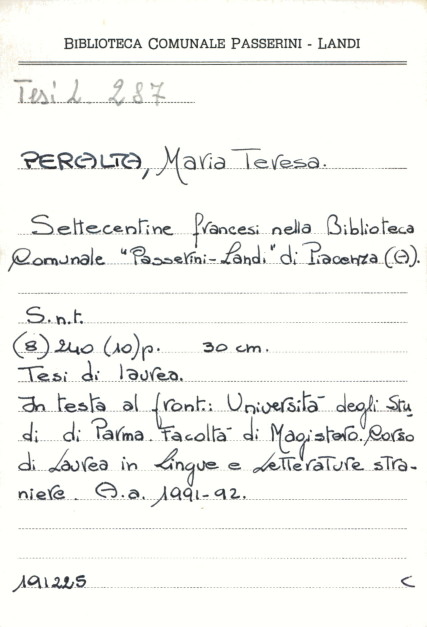 BIBLIOTECA COMUNALE PASSERINI - LANDI
Tesi L. 287
PERALTA, Maria Teresa.
Settecentine francesi nella Biblioteca
Comunale "Passerini-Landi" di Piacenza (A).
S.n.t.
(8) 240 (10) p. 30 cm.
Tesi di laurea.
In testa al front.: Università degli Stu
di di Parma. Facoltà di Magistero. Corso
di Laurea in Lingue e Letterature stra-
niere. A.a. 1991-92.
191225 C